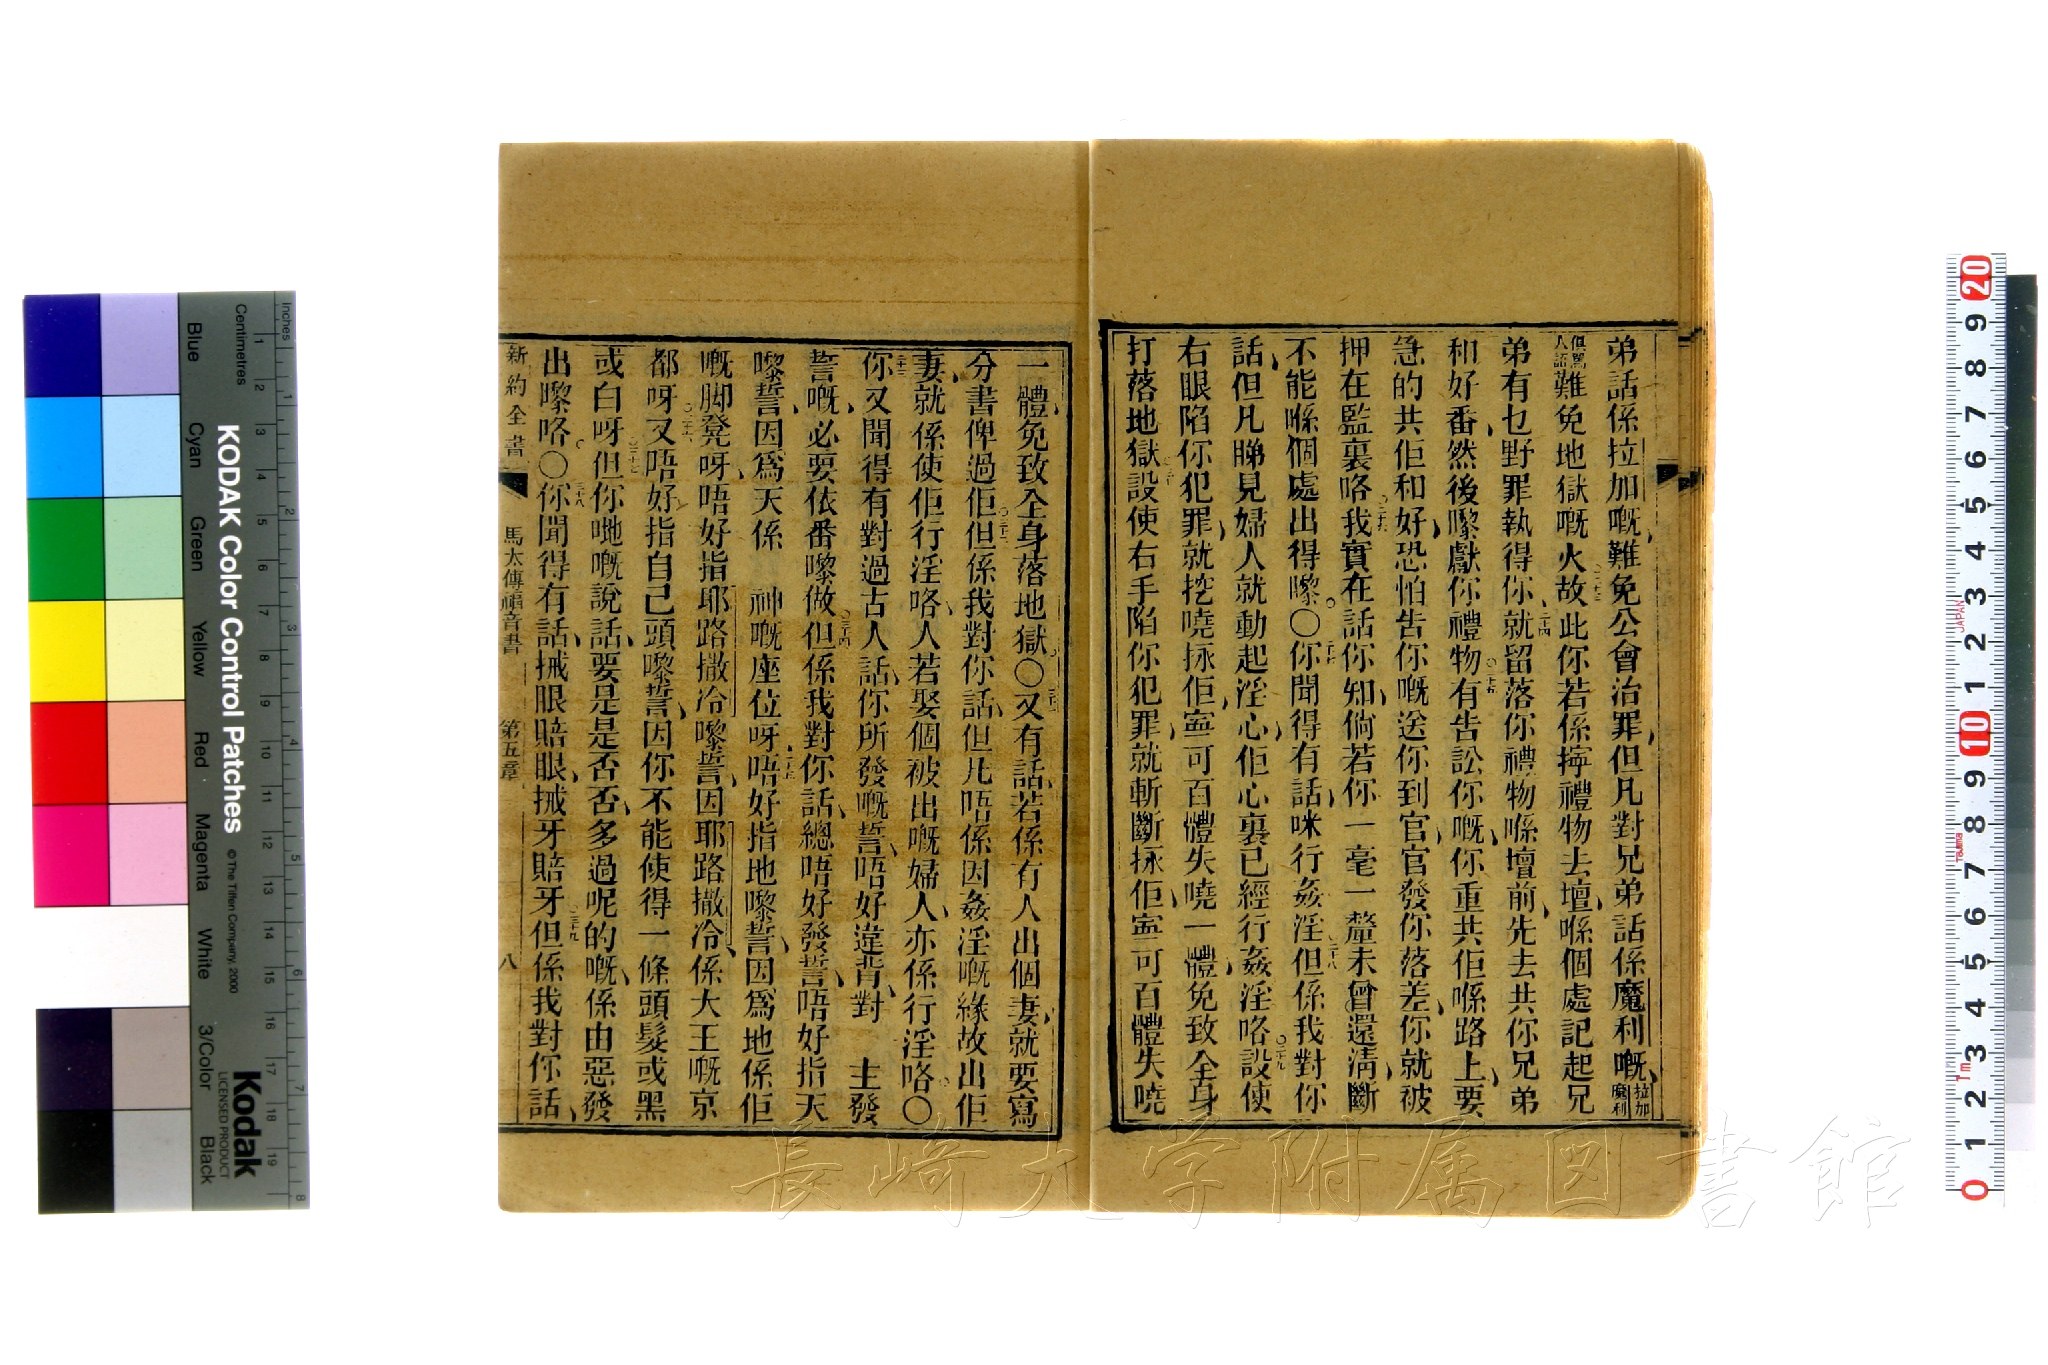 弟話係拉加嘅難免公會治罪但凡對兄弟話係魔利嘅拉加魔利
俱罵人話難免地獄嘅火故此你若係擰禮物去壇喺個處記起兄
弟有乜野罪執得你就留落你禮物喺壇前先去共你兄弟
和好番然後嚟獻你禮物有告訟你嘅你重共佢喺路上要
急的共佢和好恐怕告你嘅送你到官官發你落差你就被
押在監裏咯我實在話你知倘若你一毫一釐未曾還清斷
不能喺個處出得嚟〇你聞得有話咪行姦淫但係我對你
話但凡睇見婦人就動起淫心佢心裏已經行姦淫咯設使
右眼陷你犯罪就挖嘵拯佢寧可百體失嘵一體免致全身
打落地獄設使右手陷你犯罪就斬斷拯佢寧可百體失嘵
一體免致全身落地獄〇又有話若係有人出個妻就要寫
分書俾過佢但係我對你話但凡唔係因姦淫嘅緣故出佢
妻就係使佢行淫咯人若娶個被出嘅婦人亦係行淫咯〇
你又聞得有對過古人話你所發嘅誓唔好違背對 主發
誓嘅必要依番嚟做但係我對你話總唔好發誓唔好指天
嚟誓因爲天係 神嘅座位呀唔好指地嚟誓因爲地係佢
嘅脚凳呀唔好指耶路撒冷嚟誓因耶路撒冷係大王嘅京
都呀又唔好指自己頭嚟誓因你不能使得一條頭髮或黑
或白呀但你哋嘅說話要是是否否多過呢的嘅係由惡發
出嚟咯〇你聞得有話掝眼賠眼掝牙賠牙但係我對你話
新約全書 馬太傳福音書 第五章 八
長崎大学附属図書館
KODAK Color Control Patches
© The Tiffen Company, 2000
Kodak
LICENSED PRODUCT
Inches
Centimetres
Blue Cyan Green Yellow Red Magenta White 3/Color Black
JAPAN